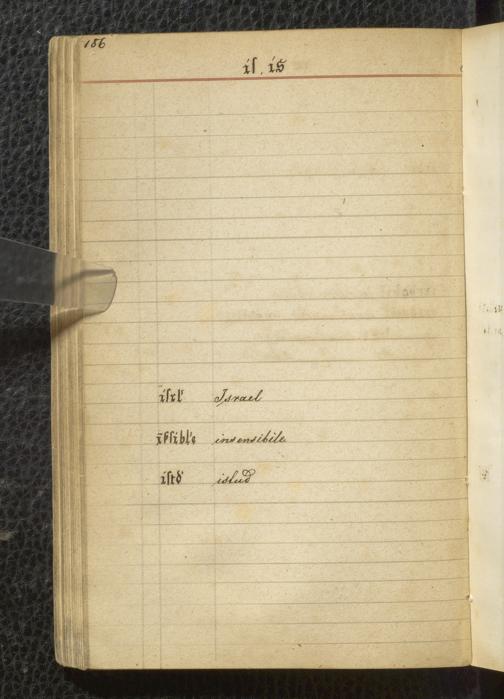 186
iſ. is
iſrl' Israel
īſſibl'e insensibile
iſtđ istud